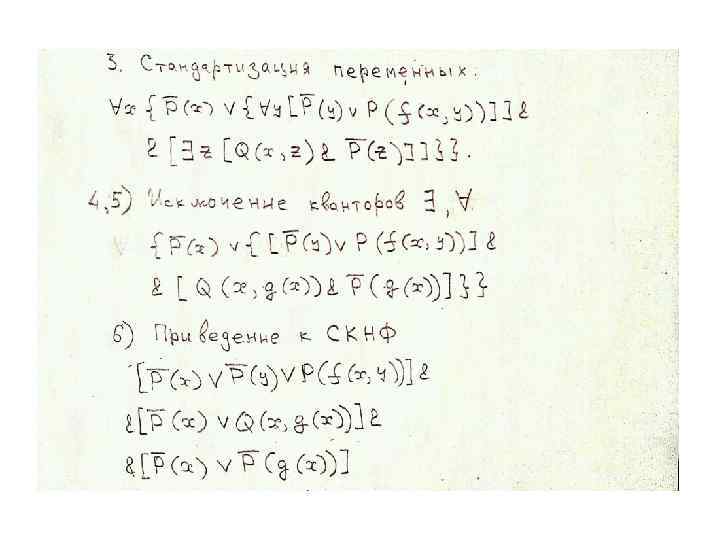 3. Стандартизация переменных:
∀x {P̅(x) ∨ {∀y[P̅(y) ∨ P(f(x,y))]] &
& [∃z [Q(x,z) & P̅(z)]]}}.
4,5) Исключение кванторов ∃, ∀
{P̅(x) ∨ {[P̅(y) ∨ P(f(x,y))] &
& [Q(x, g(x)) & P̅(g(x))]}}
6) Приведение к СКНФ
[P̅(x) ∨ P̅(y) ∨ P(f(x,y))] &
&[P̅(x) ∨ Q(x, g(x))] &
&[P̅(x) ∨ P̅(g(x))]